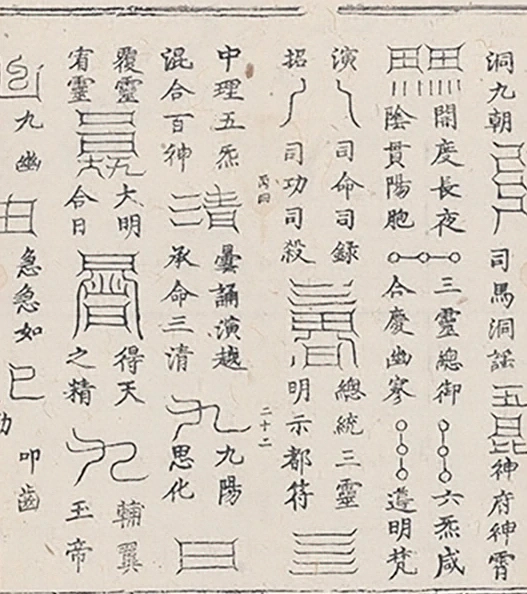 洞九朝 司馬洞謡 神府神霄
開度長夜 三靈總御 六炁咸
陰貫陽胞 合慶幽寥 遵明梵
演 司命司録 總統三靈
招 司功司殺 明示都符
丙四 二十二
中理五炁 曇誦演越 九陽
混合百神 承命三清 思化
覆靈 大明 得天 輔翼
宥靈 合日 之精 玉帝
九幽 急急如 叩齒